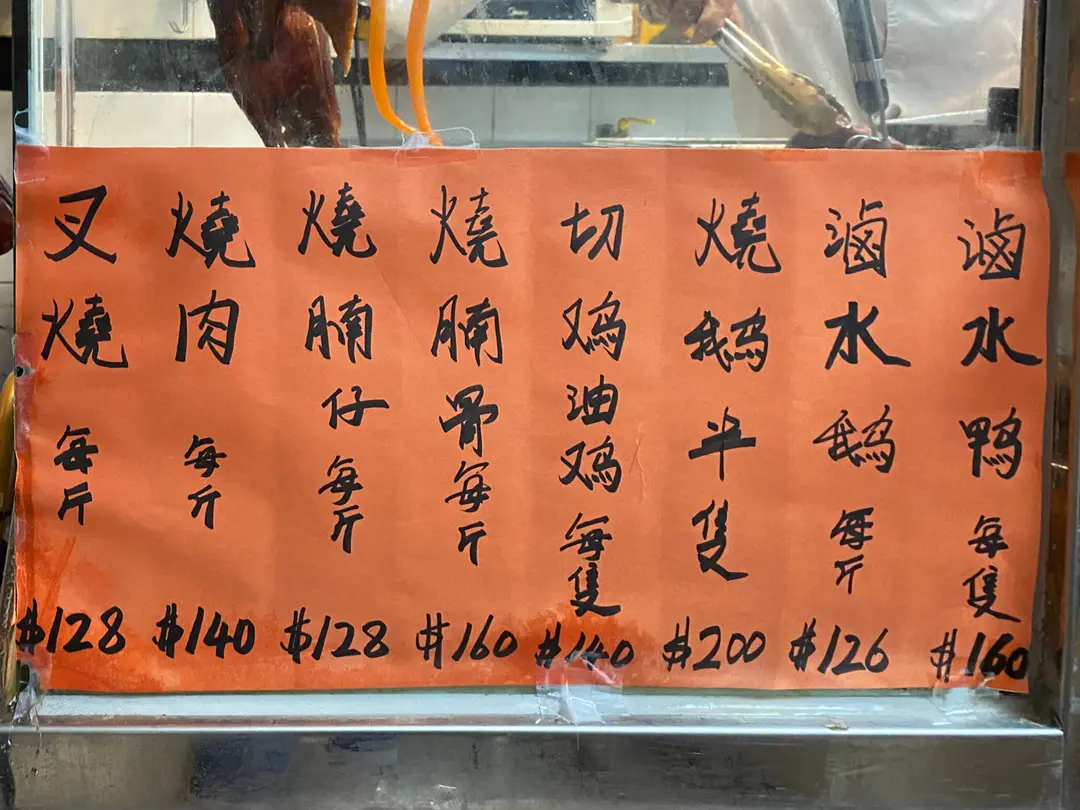 叉燒每斤 $128
燒肉每斤 $140
燒腩仔每斤 $128
燒腩骨每斤 $160
切鸡油鸡每隻 $140
燒鹅半隻 $200
滷水鹅每斤 $126
滷水鴨每隻 $160